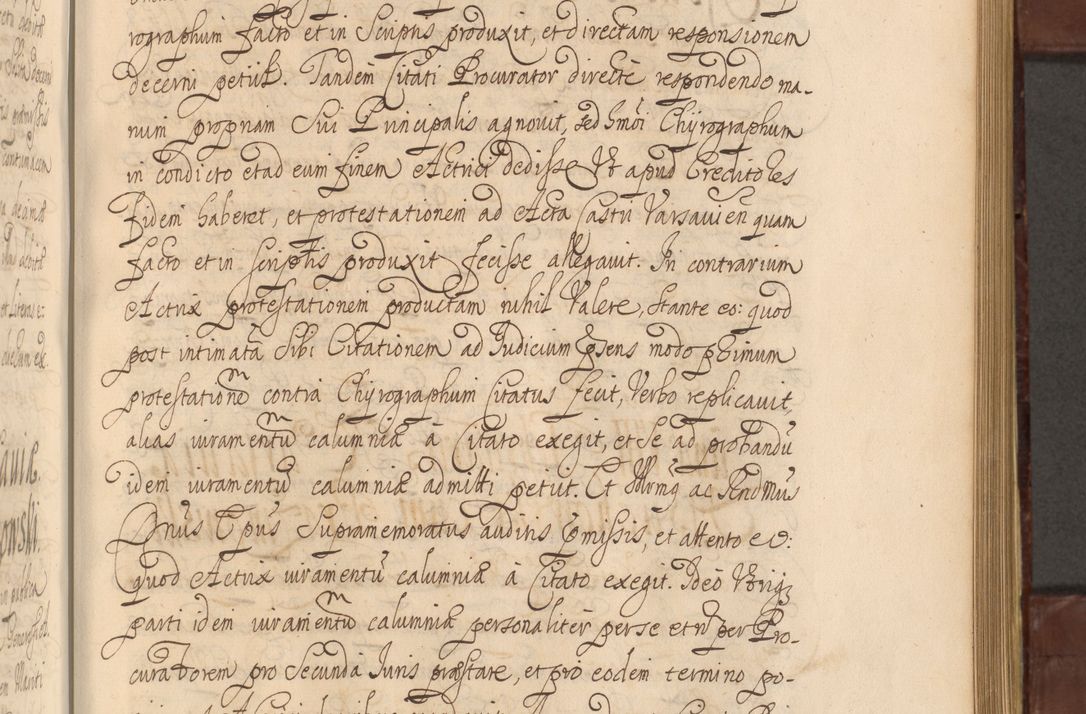 rographum facto et in Scriptis produxit, et directam responsionem
decerni petiit. Tandem Citati Procurator directè respondendo ma-
num propriam Sui Principalis agnovit, sed hmoi Chyrographum
in condicto et ad eum finem Actrici dedisse Vt apud Creditores
Fidem haberet, et protestationem ad Acta Castri Varsavien quam
facto et in scriptis produxit fecisse allegavit. In contrarium
Actrix protestationem productam nihil Valere, stante eo: quod
post intimatã Sibi Citationem ad Judicium pñs modo primum
protestationẽ contra Chyrographum Citatus fecit, Verbo replicavit,
alias iuramentũ calumniæ à Citato exegit, et Se ad probandũ
idem iuramentũ calumniæ admitti petiit. Et Illrmg ac Rendmus
Dnus Epus Supramemoratus auditis pmissis, et attento eo:
quod Actrix iuramentũ calumniæ à Citato exegit. Ideò Vtriq;
parti idem iuramentũ calumniæ personaliter per se et ñ per Pro-
curatorem pro Secunda Juris præstare, et pro eodem termino po-